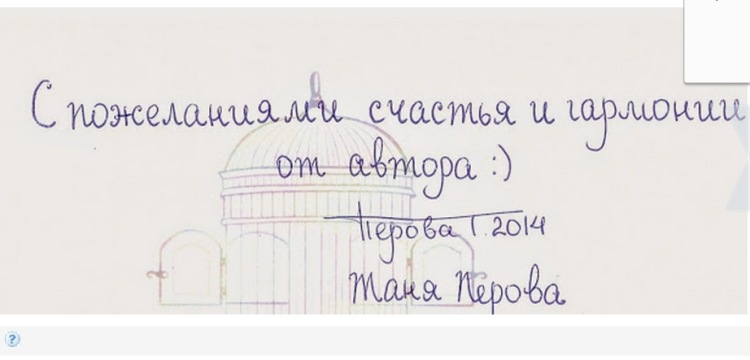 С пожеланиями счастья и гармонии
от автора :)
Перова Т. 2014
Таня Перова